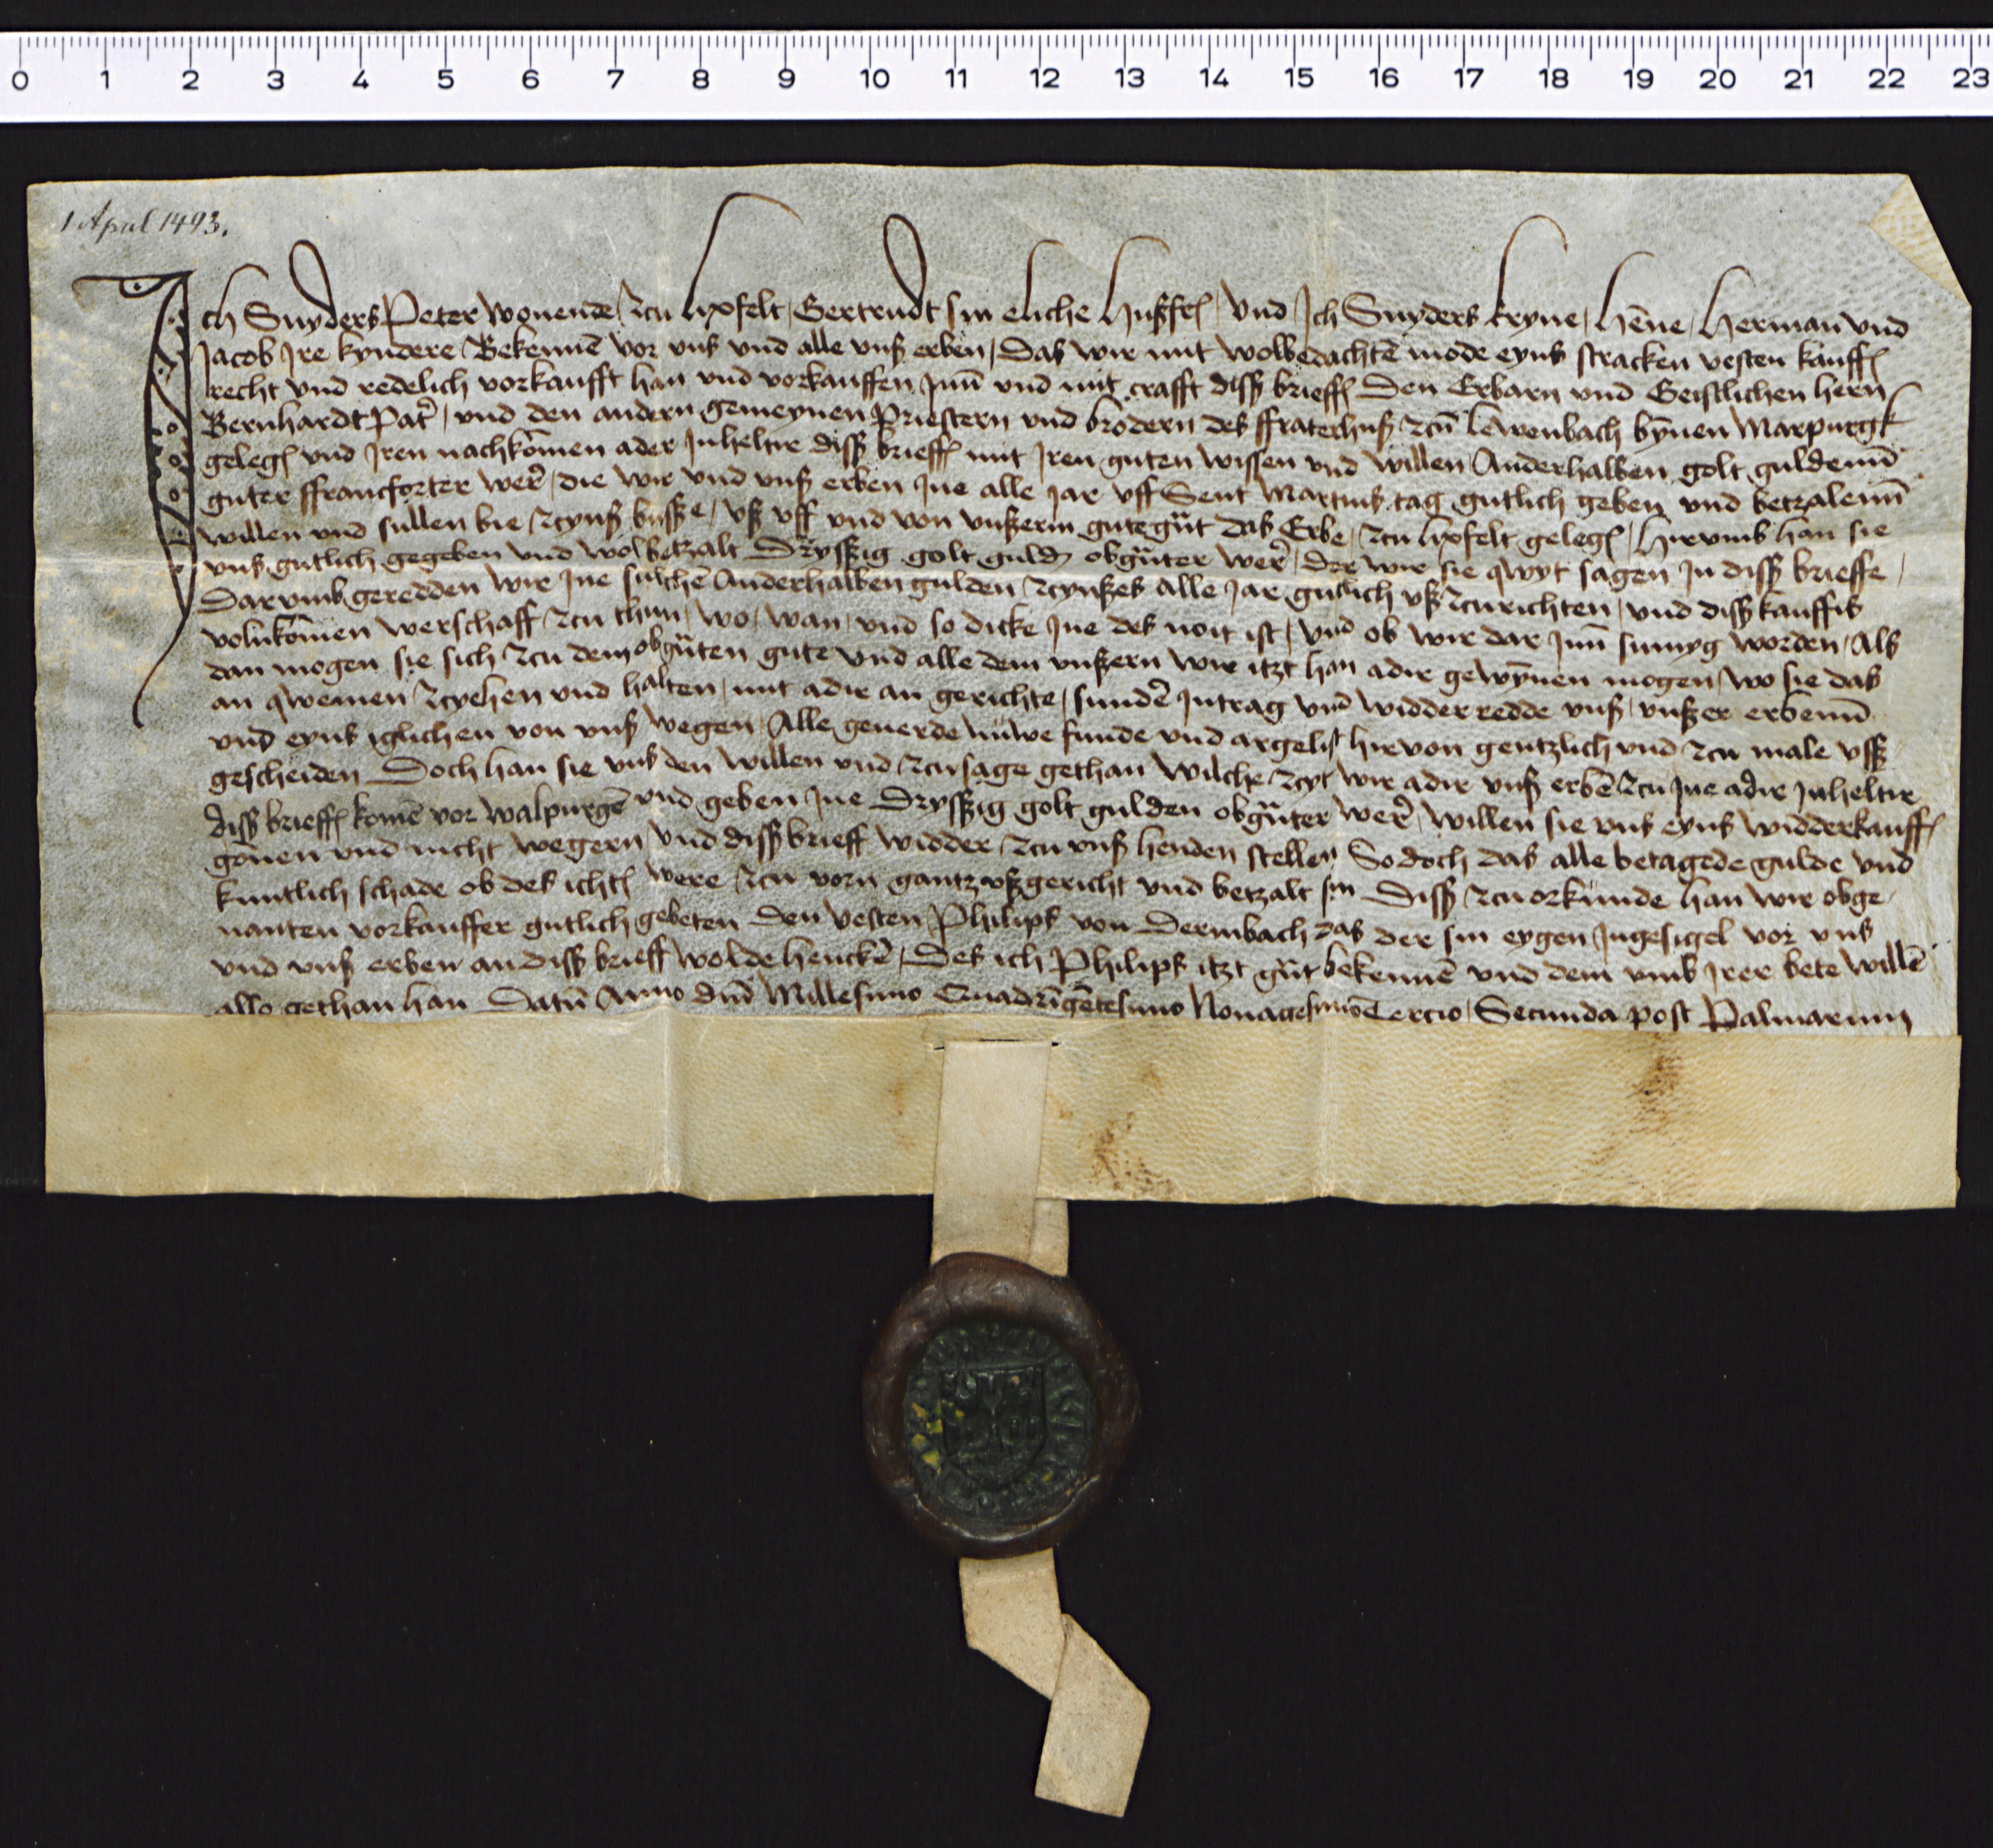 0 1 2 3 4 5 6 7 8 9 10 11 12 13 14 15 16 17 18 19 20 21 22 23
1 April 1493.
Ich Snyders Peter wonende zcu lixfelt, Gertrudt sin eliche hußfr, und Ich Snyders kryne, hēne, herman und
Jacob Ire kyndere Bekennē vor uns und alle unß erben, Das wir mit wolbedachtē mode eyns stracken vesten kauffs
recht und redelich vorkaufft han und vorkauffen Inn̄ und mit crafft diss brieffs Den Erbarn und Geistlichen hern
Bernhardt Pat̄, und den andern gemeynen Priestern und brodern des ffraterhuß zcū lewenbach bȳnen Marpurgk
gelegē und Iren nachkōmen ader Inheltre diss brieffs mit Iren guten wissen und willen Anderhalben golt guldenn̄
guter ffrancforter wer̄, die wir und unß erben Ine alle Jar uff Sent Martins tag gutlich geben und betzalenn̄
willen und sullen bie zcynß busße, uß uff und von unßerm gute güt das Erbe, zcu lixfelt gelegē, hirumb han sie
unß gutlich gegeben und wol betzalt Dryssig golt guld obgüter wer̄, der wir sie qwyt sagen In diss brieffe,
Darumb geredden wir Ine sulchē Anderhalben gulden zcynßes alle Jar gutlich uß zcurichten, und diss kauffis
volnkōmen werschaff zcu thun, wo, wan, und so dicke Ine des noit ist, und ob wir dar Inn̄ sumyg worden, Als
dan mogen sie sich zcu dem obgüten gute und alle dem unßern wir itzt han adir gewȳnen mogen, wo sie das
an qwemen zcyehen und halten, mit adir an gerichte, sundē Intrag und widderredde unß, unßer erbenn̄
und eyns iglichen von unß wegen, Alle geverde nuwe funde und argelist hirvon gentzlich und zcu male uß
gescheiden Doch han sie uns den willen und zcusage gethan wilche zcyt wir adir unß erbē zcu Ine adir Inheltre
diss brieffs komē vor walpurgē und geben Ine Dryssig golt gulden obgüter wer̄, willen sie uns eyns widderkauffs
gōnen und nicht wegern und diss brieff widder zcu unß henden stellen So doch das alle betagede gulde und
kuntlich schade ob des ichts were zcu vorn gantz ußgericht und betzalt sin Diss zcu orkunde han wir obge
nanten vorkauffer gutlich gebeten den vesten Philips von Dermbach das der sin eygen Ingesigel vor uns
und unß erben an diss brieff wolde henckē, Des ich Philips itzt güt bekennē und dem umb Irer bete willē
also gethan han Datū Anno dn̄i Millesimo Quadrīgētesimo Nonagesimo Tercio, Secunda post Palmarum